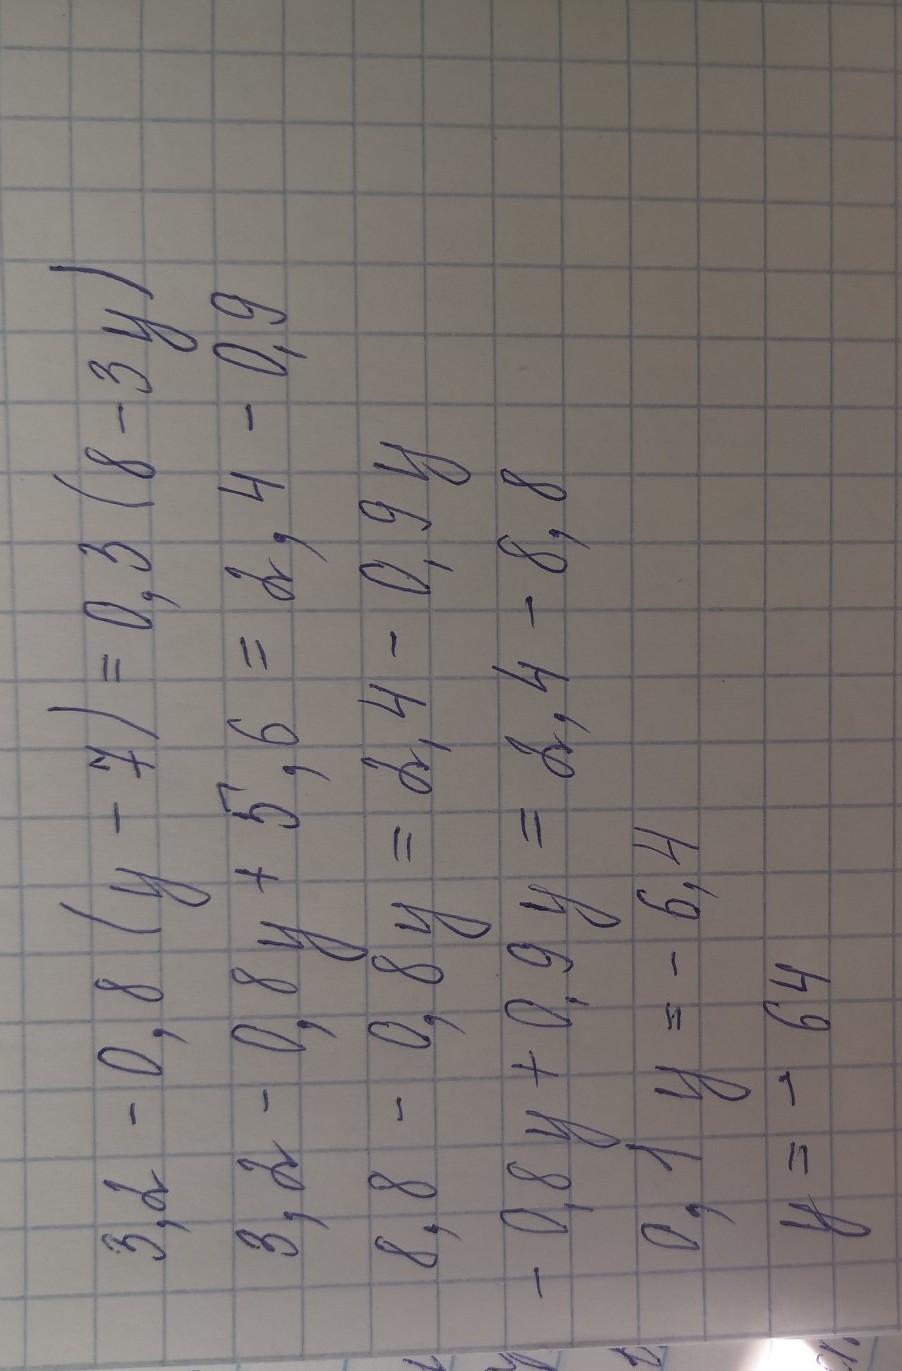 3,2 - 0,8 (y - 7) = 0,3 (8 - 3y)
3,2 - 0,8y + 5,6 = 2,4 - 0,9
8,8 - 0,8y = 2,4 - 0,9y
- 0,8y + 0,9y = 2,4 - 8,8
0,1 y = - 6,4
y = - 64